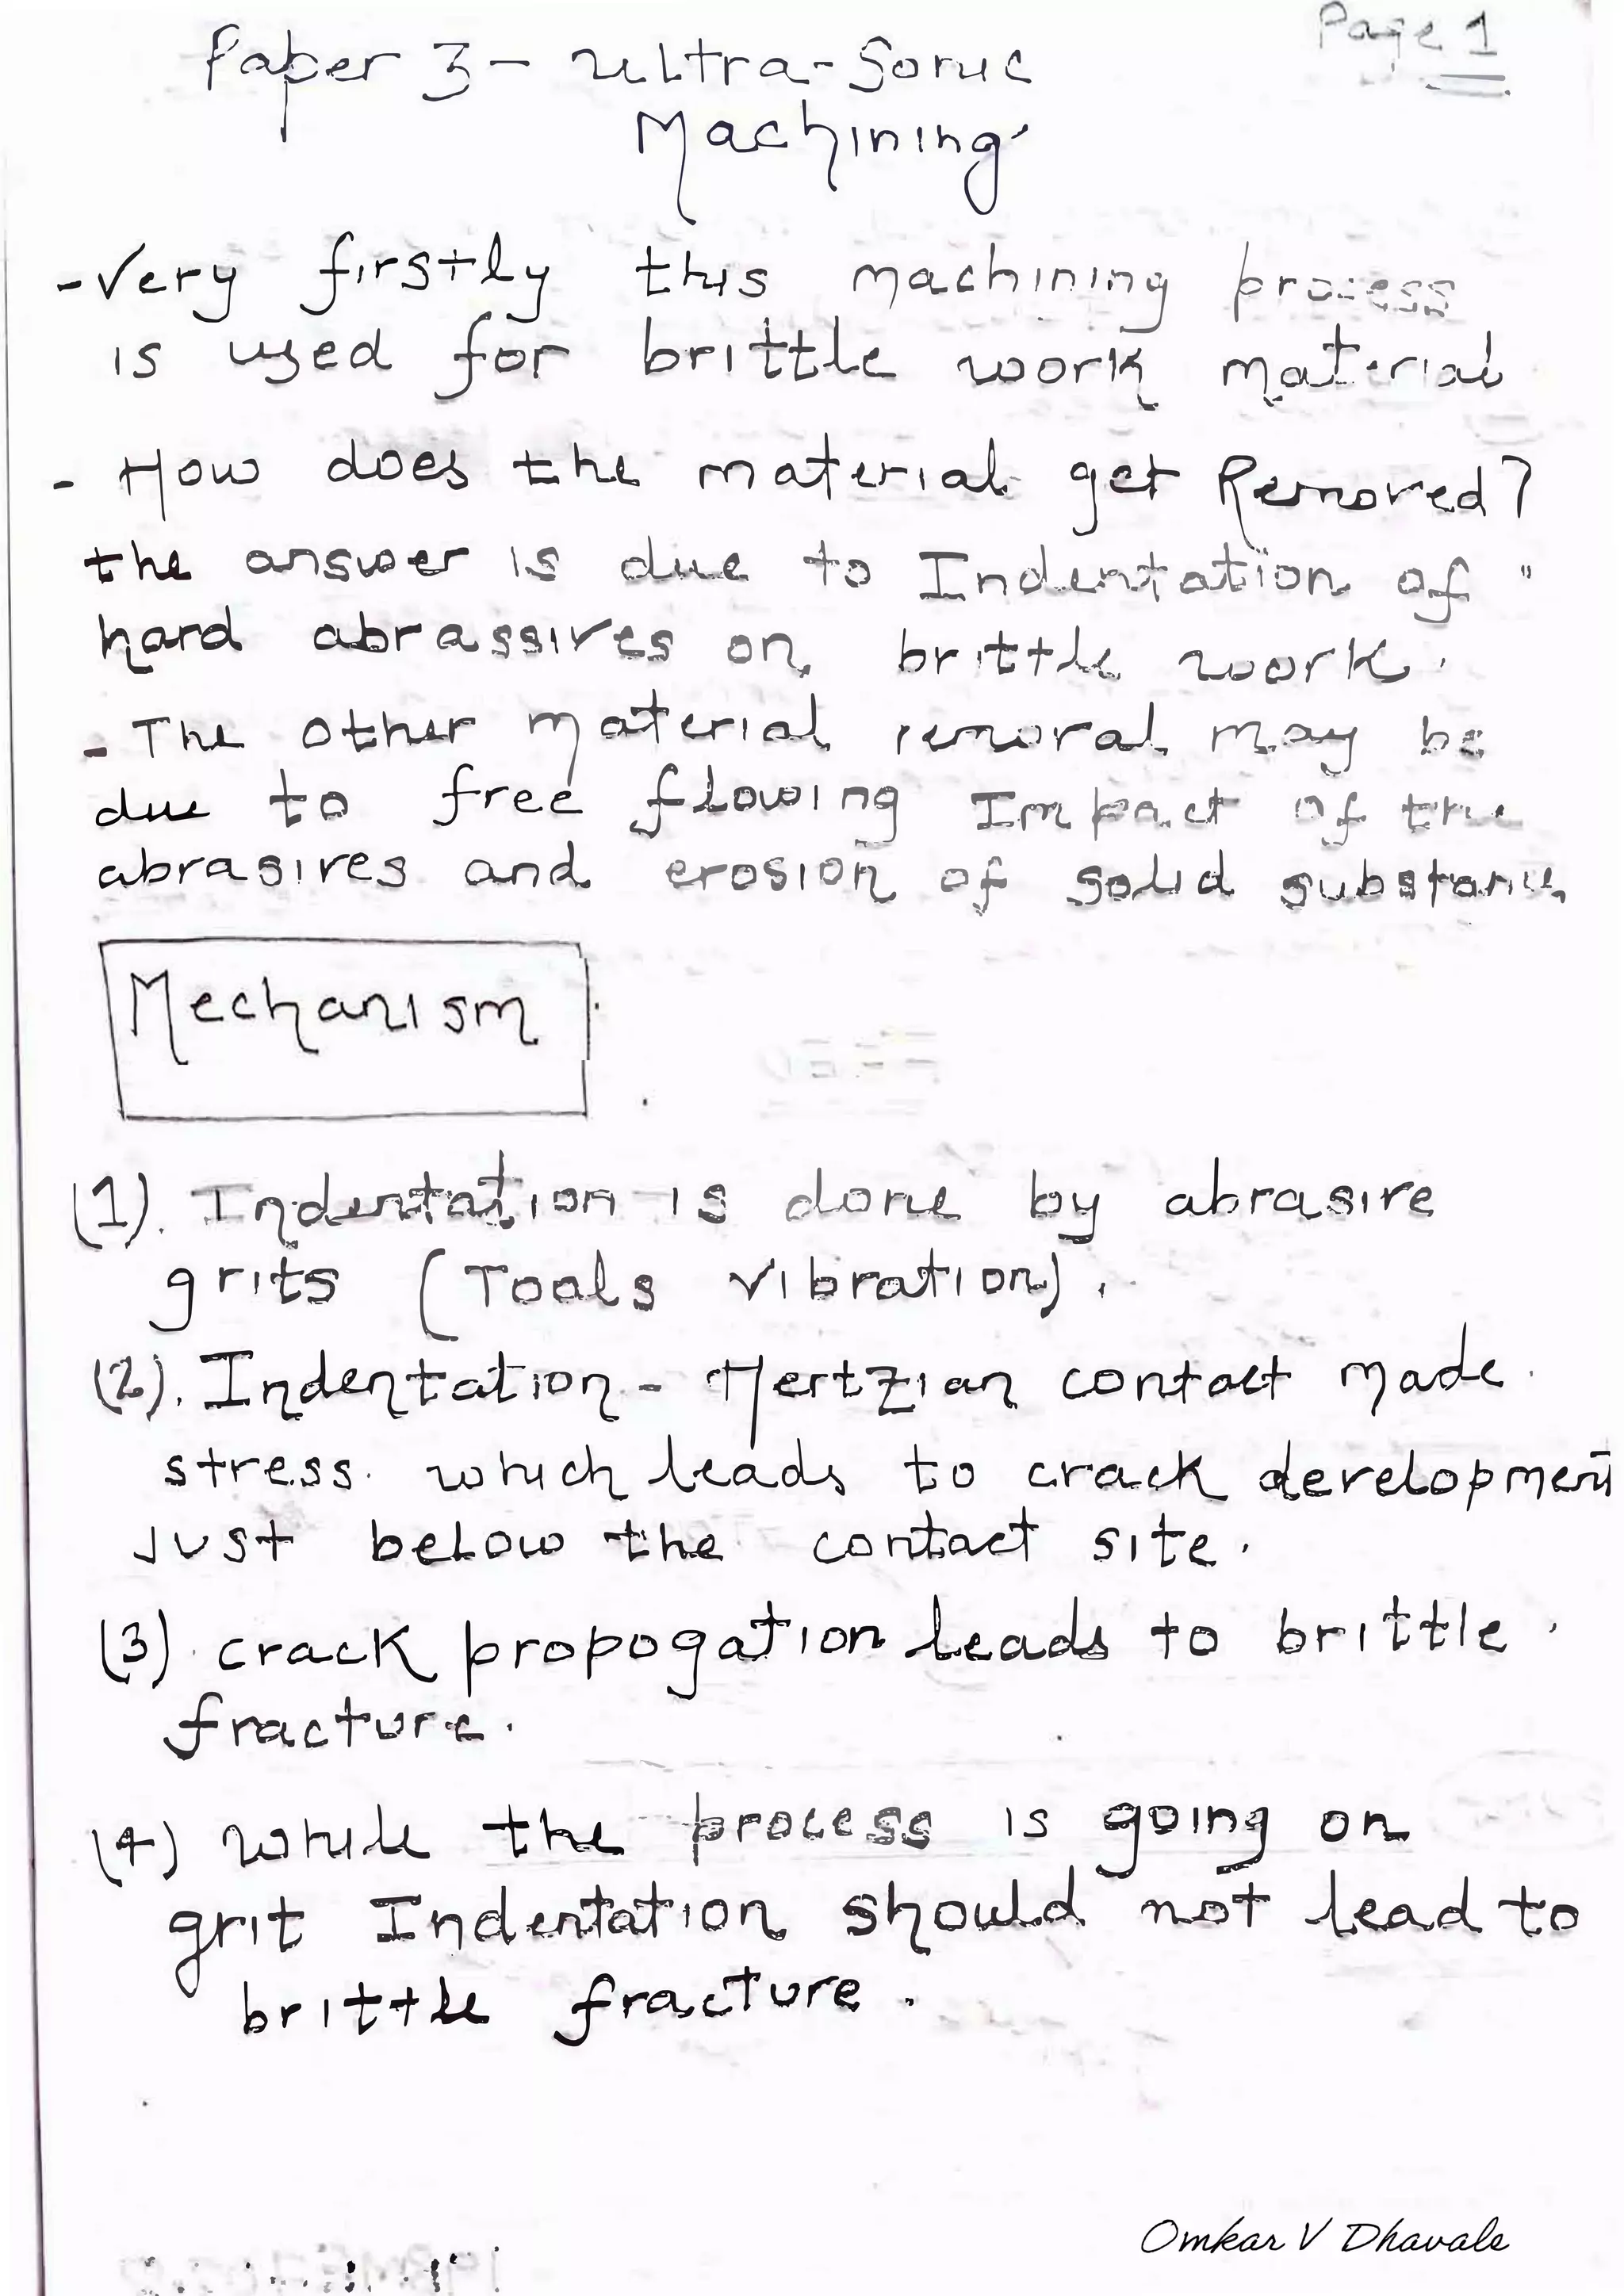 Page 1
Paper 3 - Ultra-Sonic
Machining
- Very firstly this machining process
is used for brittle work material
- How does the material get Removed?
the answer is due to Indentation of "
hard abrassives on brittle work.
- The other material removal may be
due to free flowing Impact of the
abrasives and erosion of solid substance
Mechanism
(1). Indentation is done by abrasive
grits (Tools vibration).
(2). Indentation - Hertzian contact made
stress which leads to crack development
Just below the contact site.
(3). crack propogation leads to brittle
fracture.
(4) while the process is going on
grit Indentation should not lead to
brittle fracture.
Omkar V Dhavale